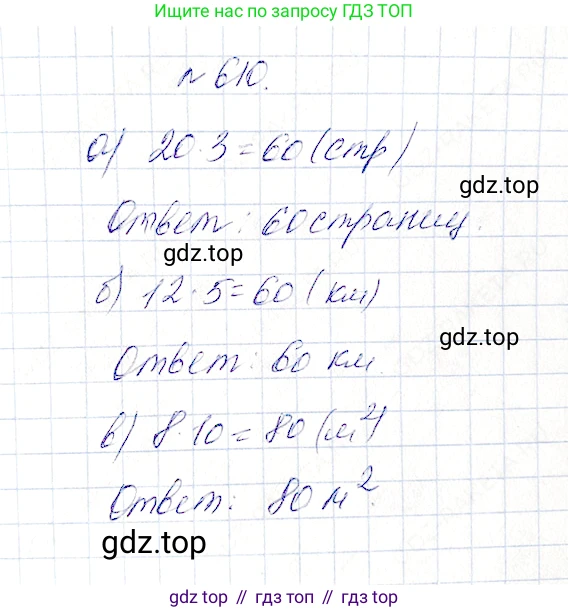 Ищите по запросу ГДЗ ТОП
№ 610.
а) 20 · 3 = 60 (стр)
gdz.top
Ответ: 60 страниц.
gdz.top
б) 12 · 5 = 60 (км)
gdz.top
Ответ: 60 км.
в) 8 · 10 = 80 (м²)
Ответ: 80 м².
gdz.top
gdz.top // гдз топ // gdz.top